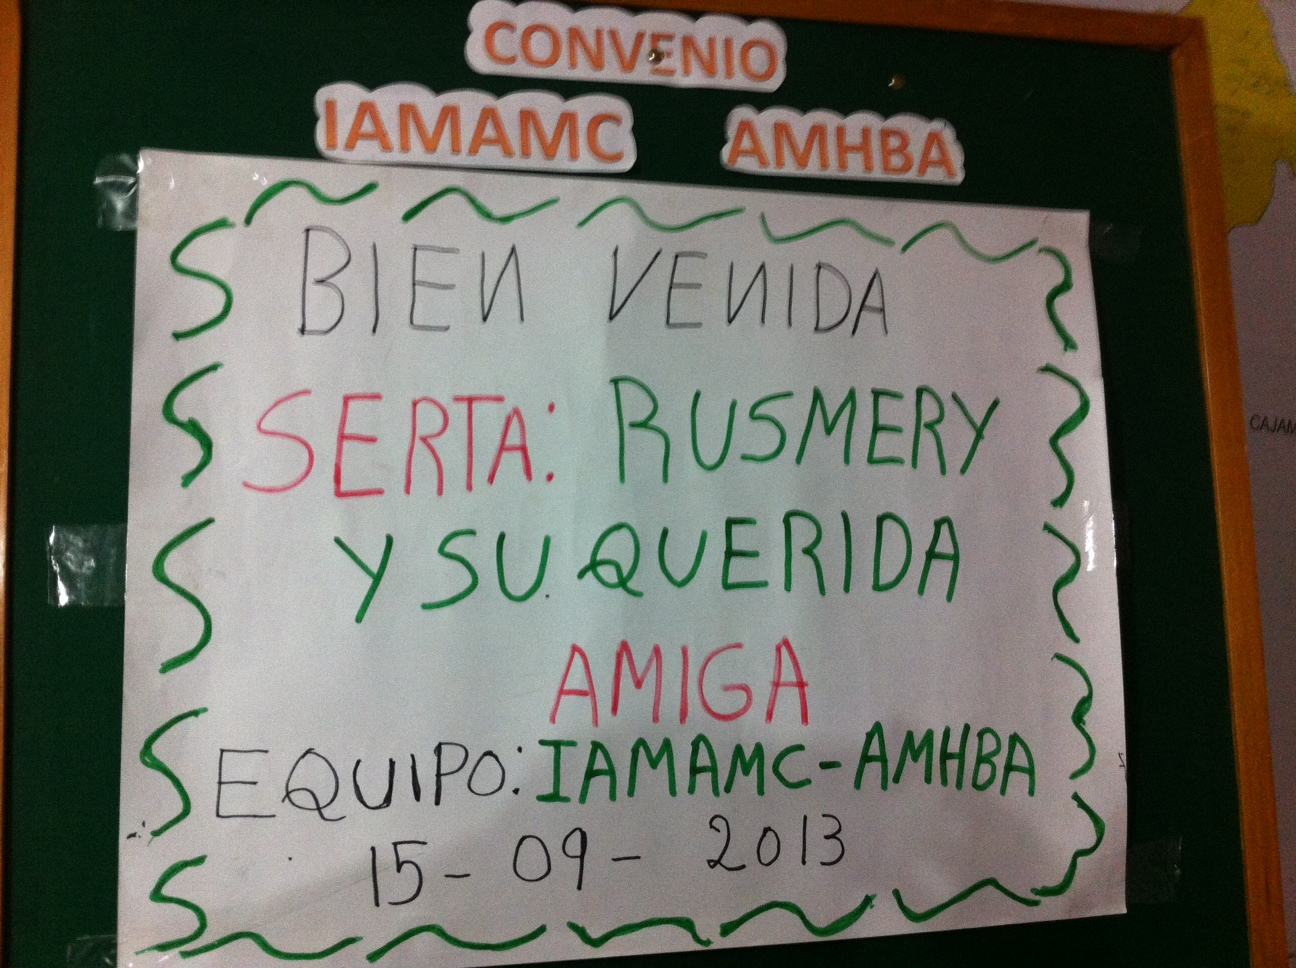 CONVENIO
IAMAMC AMHBA
BIEN VENIDA
SERTA: RUSMERY
Y SU QUERIDA
AMIGA
EQUIPO: IAMAMC-AMHBA
15-09-2013
CAJAM